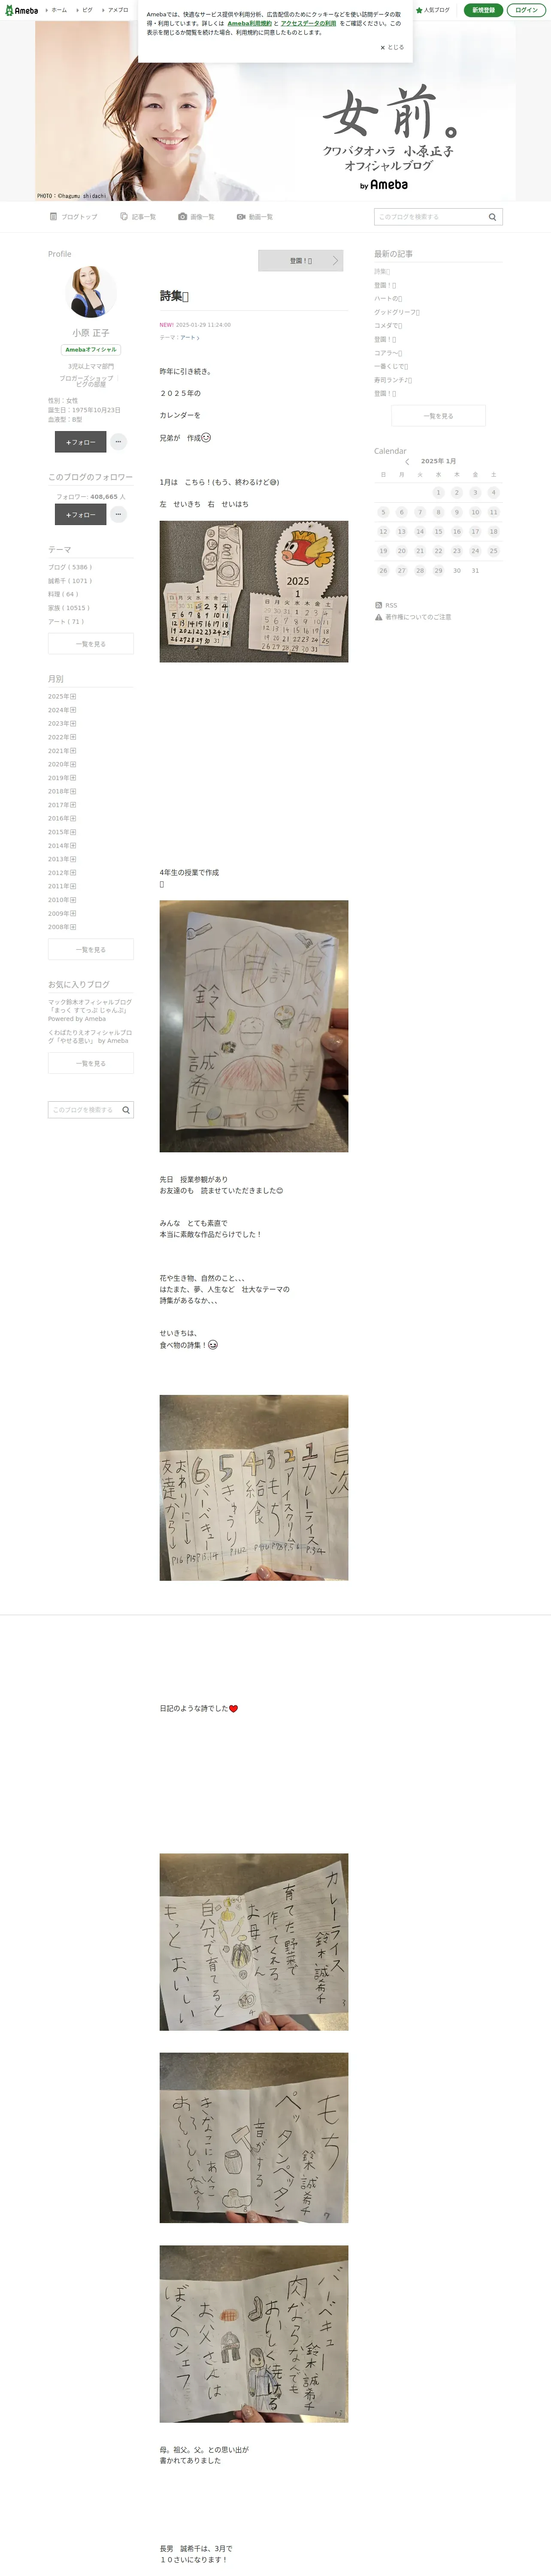 Ameba
ホーム
ピグ
アメブロ
Amebaでは、快適なサービス提供や利用分析、広告配信のためにクッキーなどを使い訪問データの取
得・利用しています。詳しくは Ameba利用規約 と アクセスデータの利用 をご確認ください。この
表示を閉じるか閲覧を続けた場合、利用規約に同意したものとします。
とじる
人気ブログ
新規登録
ログイン
女前。
クワバタオハラ 小原正子
オフィシャルブログ
by Ameba
PHOTO：©hagumu shidachi
ブログトップ
記事一覧
画像一覧
動画一覧
このブログを検索する
Profile
小原 正子
Amebaオフィシャル
3児以上ママ部門
ブロガーズショップ
ピグの部屋
性別：女性
誕生日：1975年10月23日
血液型：B型
+フォロー
このブログのフォロワー
フォロワー: 408,665 人
+フォロー
テーマ
ブログ ( 5386 )
誠希千 ( 1071 )
料理 ( 64 )
家族 ( 10515 )
アート ( 71 )
一覧を見る
月別
2025年
2024年
2023年
2022年
2021年
2020年
2019年
2018年
2017年
2016年
2015年
2014年
2013年
2012年
2011年
2010年
2009年
2008年
一覧を見る
お気に入りブログ
マック鈴木オフィシャルブログ
「まっく すてっぷ じゃんぷ」
Powered by Ameba
くわばたりえオフィシャルブロ
グ「やせる思い」 by Ameba
一覧を見る
このブログを検索する
登園！
詩集
NEW! 2025-01-29 11:24:00
テーマ：アート
昨年に引き続き。
２０２５年の
カレンダーを
兄弟が　作成
1月は　こちら！(もう、終わるけど😅)
左　せいきち　右　せいはち
2025
1
日 月 火 水 木 金 土
4年生の授業で作成
食詩食べ物
詩集
鈴木 誠希千
先日　授業参観があり
お友達のも　読ませていただきました😊
みんな　とても素直で
本当に素敵な作品だらけでした！
花や生き物、自然のこと、、、
はたまた、夢、人生など　壮大なテーマの
詩集があるなか、、、
せいきちは、
食べ物の詩集！
目次
1 カレーライス
2 アイスクリーム
3 もち
4 給食
5 きゅうり
6 バーベキュー
おわりに
友達から
日記のような詩でした
カレーライス
鈴木 誠希千
育てた野菜で
作ってくれる
お母さん
自分で育てると
もっとおいしい
もち
鈴木 誠希千
ペッタンペッタン
音がする
きなこにあんこ
おいしいな〜
バーベキュー
鈴木 誠希千
肉ならなんでも
おいしく焼ける
お父さんは
ぼくのシェフ
母。祖父。父。との思い出が
書かれてありました
長男　誠希千は、3月で
１０さいになります！
最近の記事
詩集
登園！
ハートの
グッドグリーフ
コメダで
登園！
コアラ〜
一番くじで
寿司ランチ♪
登園！
一覧を見る
Calendar
2025年 1月
日 月 火 水 木 金 土
1 2 3 4
5 6 7 8 9 10 11
12 13 14 15 16 17 18
19 20 21 22 23 24 25
26 27 28 29 30 31
RSS
著作権についてのご注意